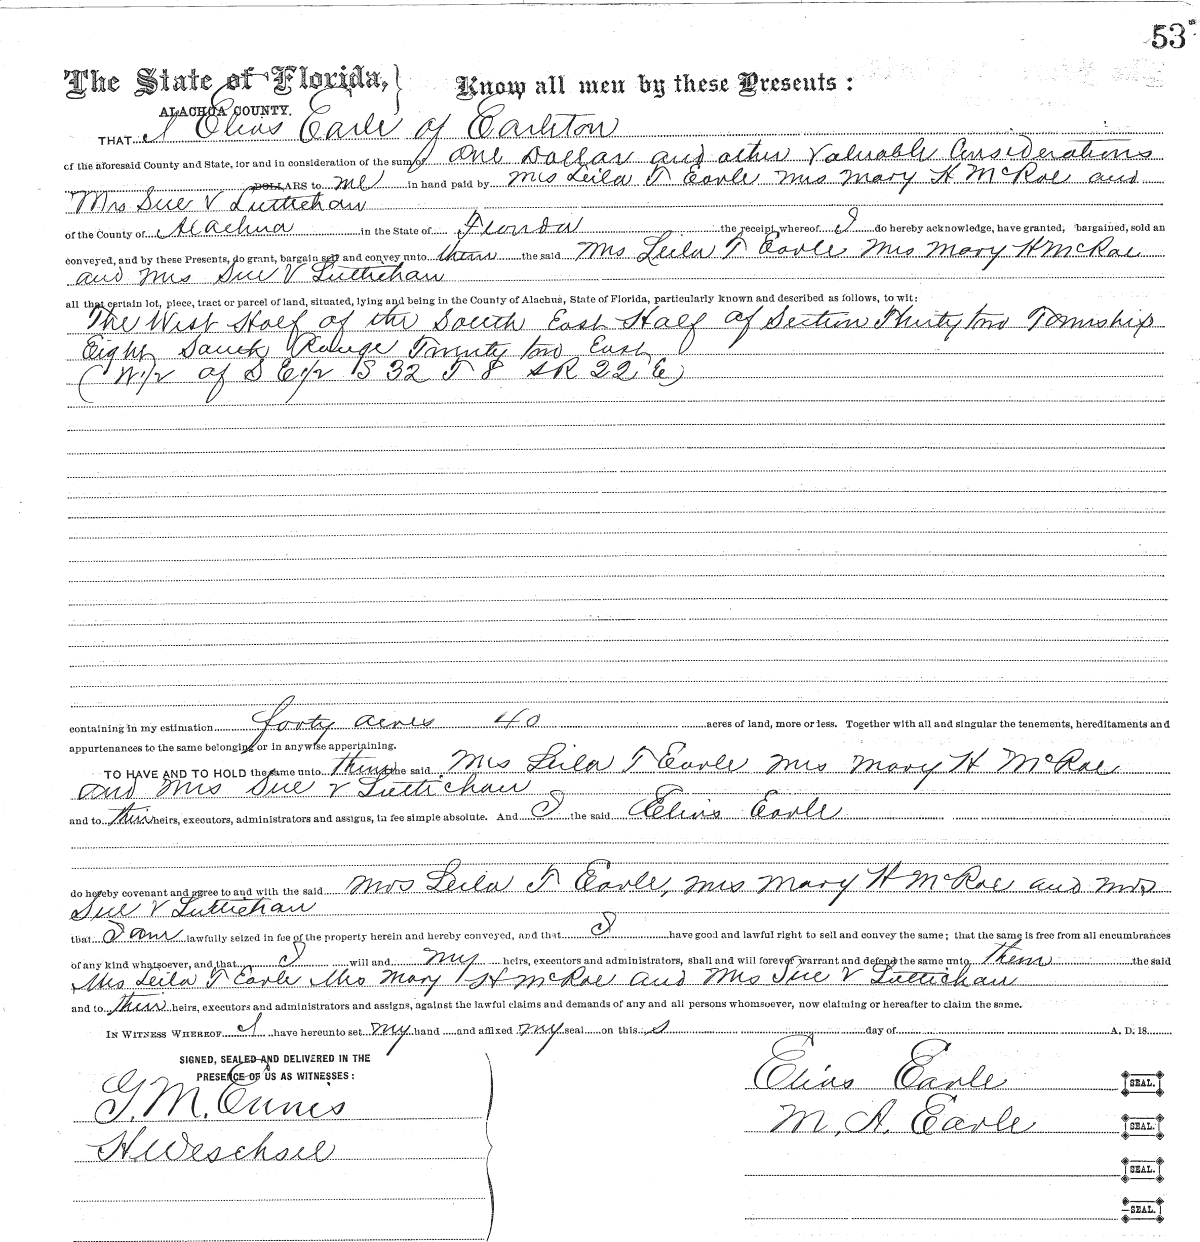 53
The State of Florida, } Know all men by these Presents :
ALACHUA COUNTY.
THAT I Elias Earle of Earleton
of the aforesaid County and State, for and in consideration of the sum of One Dollar and other Valuable Considerations
DOLLARS to me in hand paid by Mrs Leila T Earle Mrs Mary H McRae and
Mrs Sue V Luttichau
of the County of Alachua in the State of Florida the receipt whereof I do hereby acknowledge, have granted, bargained, sold an
conveyed, and by these Presents, do grant, bargain sell and convey unto them the said Mrs Leila T Earle Mrs Mary H McRae
and Mrs Sue V Luttichau
all that certain lot, piece, tract or parcel of land, situated, lying and being in the County of Alachua, State of Florida, particularly known and described as follows, to wit:
The West Half of the South East Half of Section Thirty two Township
Eight South Range Twenty two East
(W1/2 of S E1/2 S 32 T 8 S R 22 E)
containing in my estimation forty acres 40 acres of land, more or less. Together with all and singular the tenements, hereditaments and
appurtenances to the same belonging or in anywise appertaining.
TO HAVE AND TO HOLD the same unto them the said Mrs Leila T Earle Mrs Mary H McRae
and Mrs Sue V Luttichau
and to their heirs, executors, administrators and assigns, in fee simple absolute. And I the said Elias Earle
do hereby covenant and agree to and with the said Mrs Leila T Earle, Mrs Mary H McRae and Mrs
Sue V Luttichau
that I am lawfully seized in fee of the property herein and hereby conveyed, and that I have good and lawful right to sell and convey the same; that the same is free from all encumbrances
of any kind whatsoever, and that I will and my heirs, executors and administrators, shall and will forever warrant and defend the same unto them the said
Mrs Leila T Earle Mrs Mary H McRae and Mrs Sue V Luttichau
and to their heirs, executors and administrators and assigns, against the lawful claims and demands of any and all persons whomsoever, now claiming or hereafter to claim the same.
IN WITNESS WHEREOF I have hereunto set my hand and affixed my seal on this day of A. D. 18
SIGNED, SEALED AND DELIVERED IN THE
PRESENCE OF US AS WITNESSES:
Elias Earle SEAL.
G. M. Ennis
M. A. Earle SEAL.
H. Weschsel
SEAL.
SEAL.